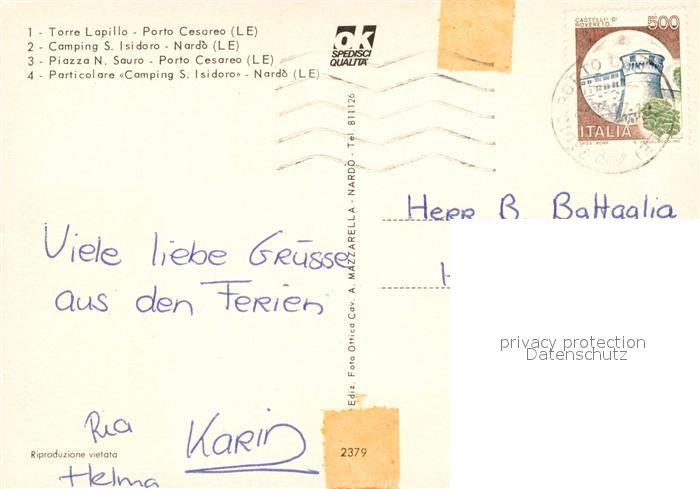 1 - Torre Lapillo - Porto Cesareo (LE)
2 - Camping S. Isidoro - Nardò (LE)
3 - Piazza N. Sauro - Porto Cesareo (LE)
4 - Particolare «Camping S. Isidoro» - Nardò (LE)
ok
SPEDISCI
QUALITÀ
CASTELLO DI
ROVERETO
500
ITALIA
Ediz. Foto Ottica Cav. A. MAZZARELLA - NARDÒ - Tel. 811126
Herr B. Battaglia
H
Viele liebe Grüsse
aus den Ferien
privacy protection
Datenschutz
Ria
Karin
Helma
Riproduzione vietata
2379